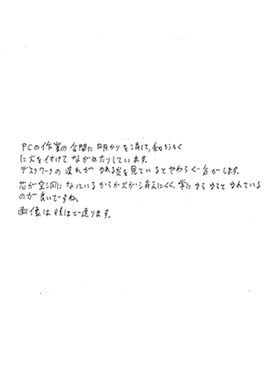 PCの作業の合間に明かりを消して、和ろうそく
に火を付けてながめたりしています。
デスクワークの疲れが ゆれる炎を見ているとやわらぐ気がします。
芯が空洞になっているからか火がつ消えにくく、常にゆらゆらとゆれている
のが良いですね。
画像は後ほど送ります。